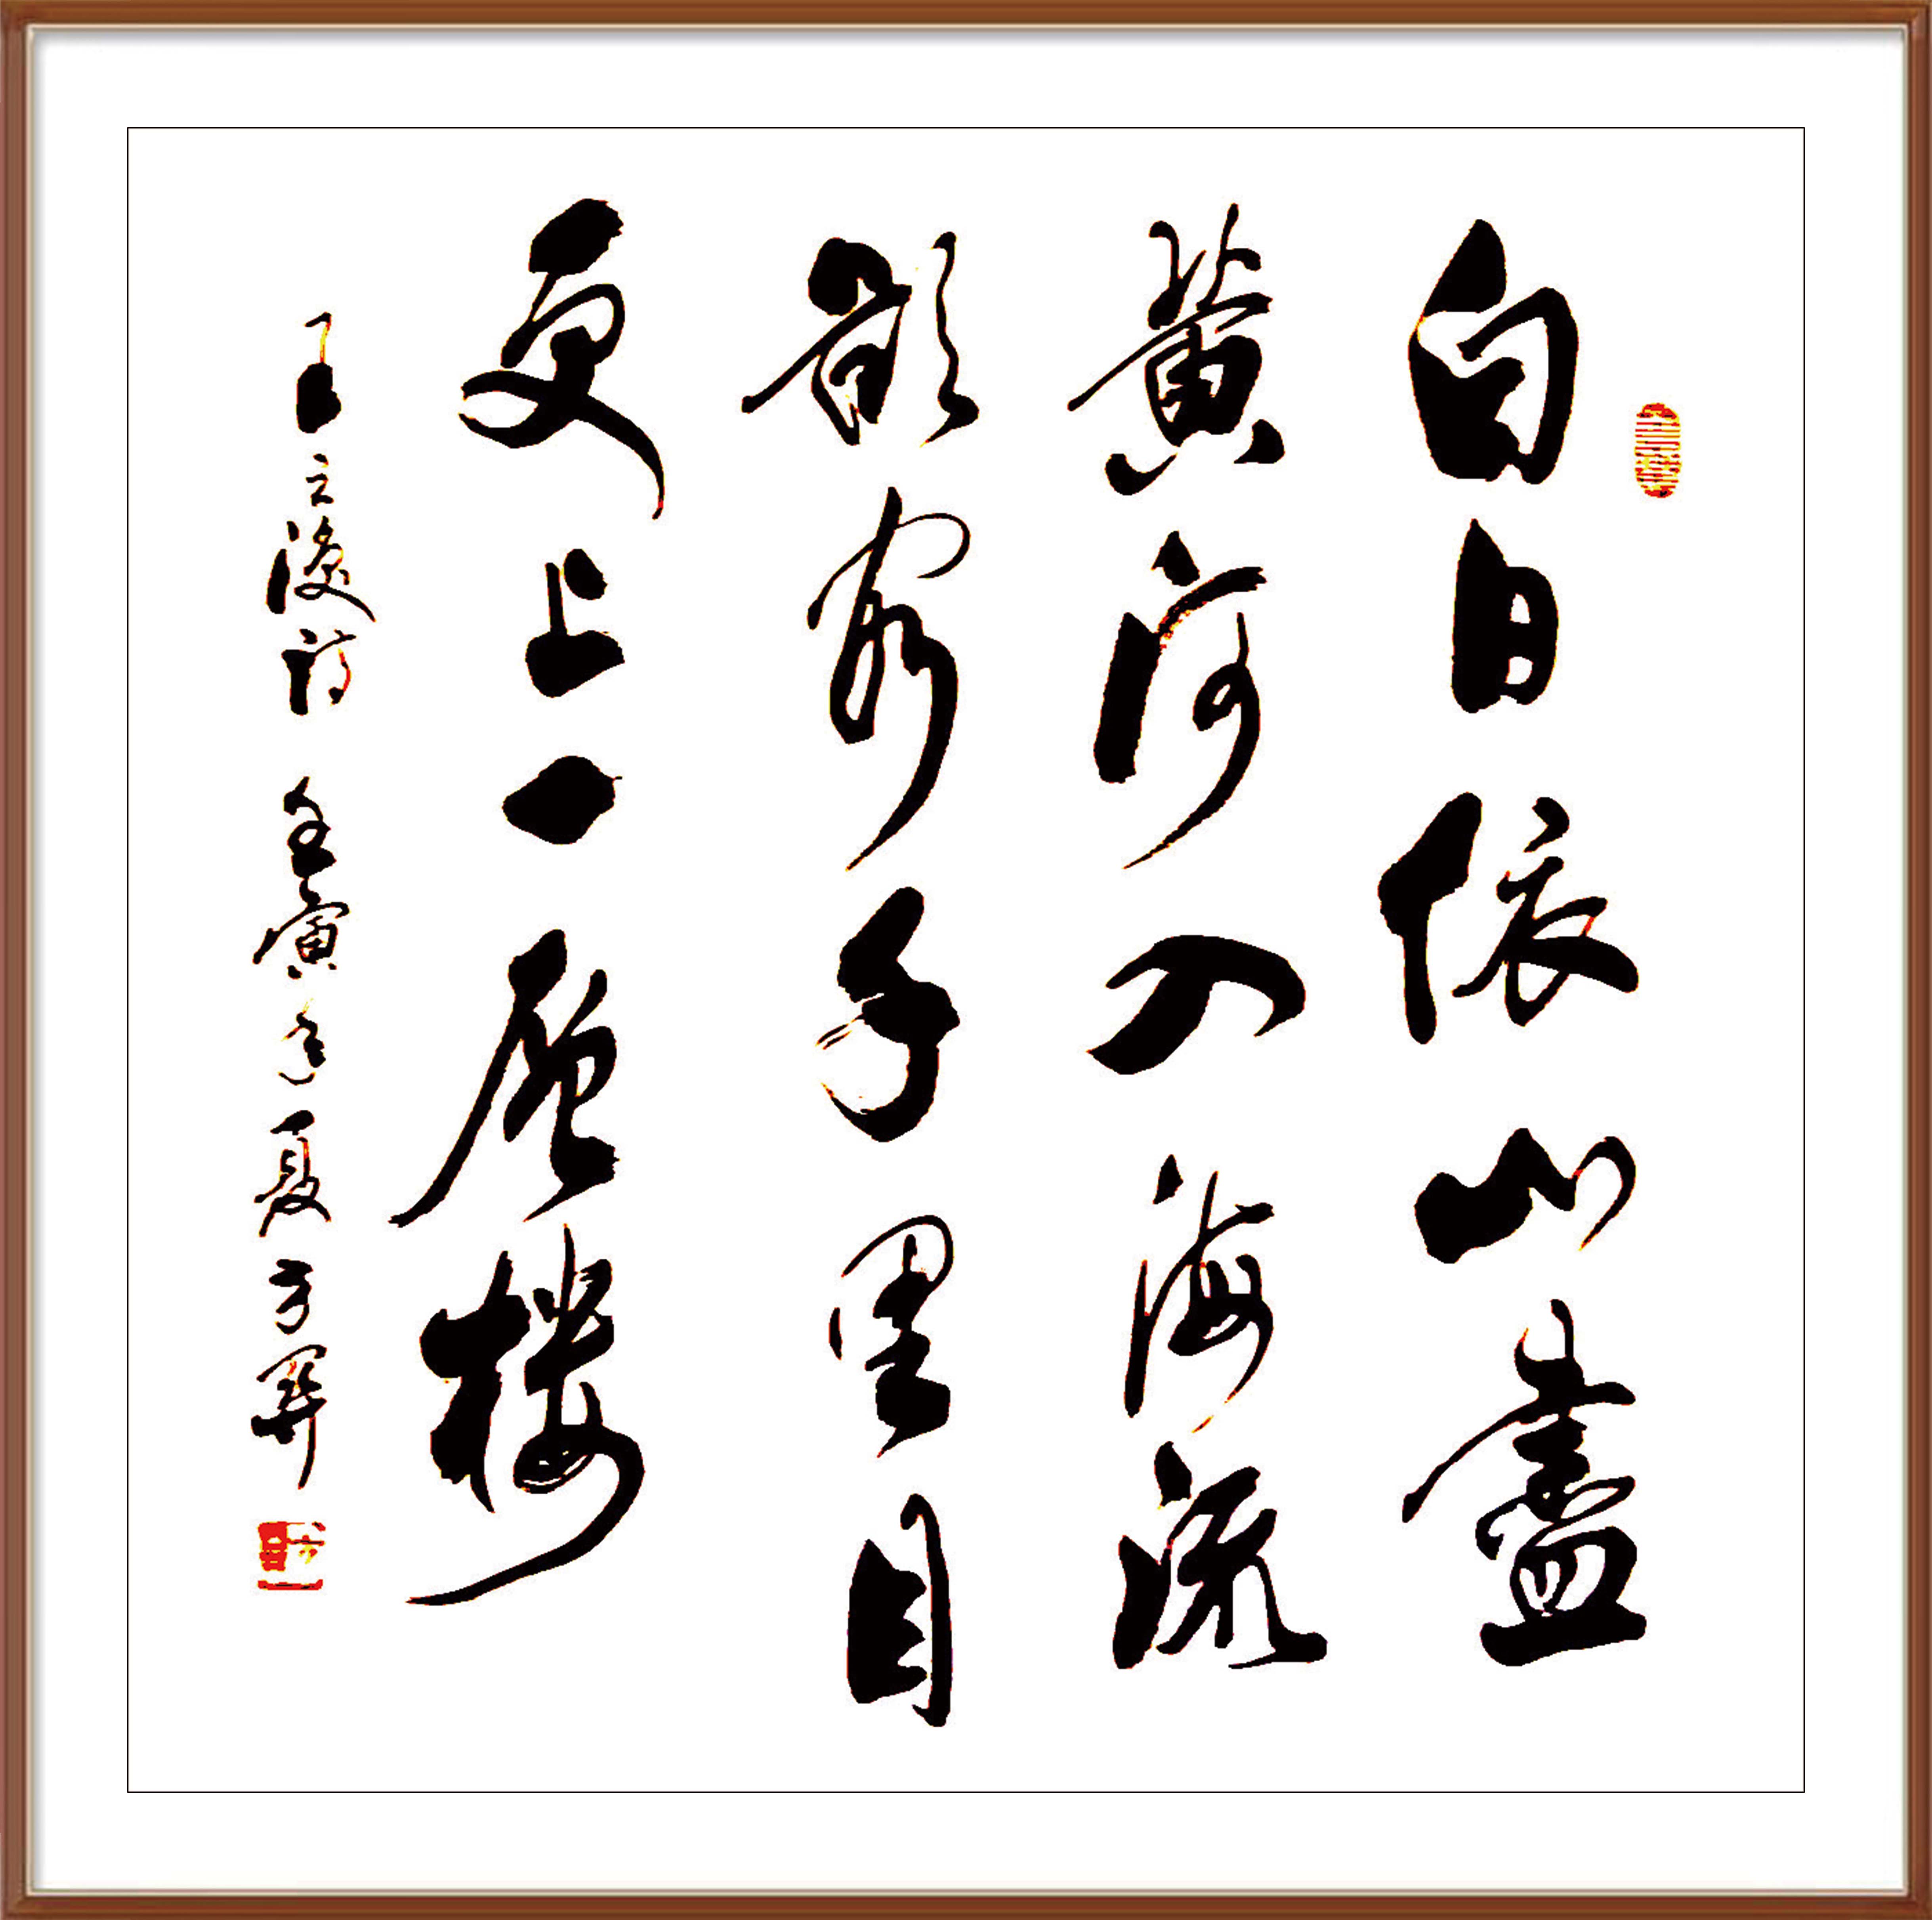 白日依山盡
黄河入海流
欲窮千里目
更上一層樓
王之渙詩 寅年夏方